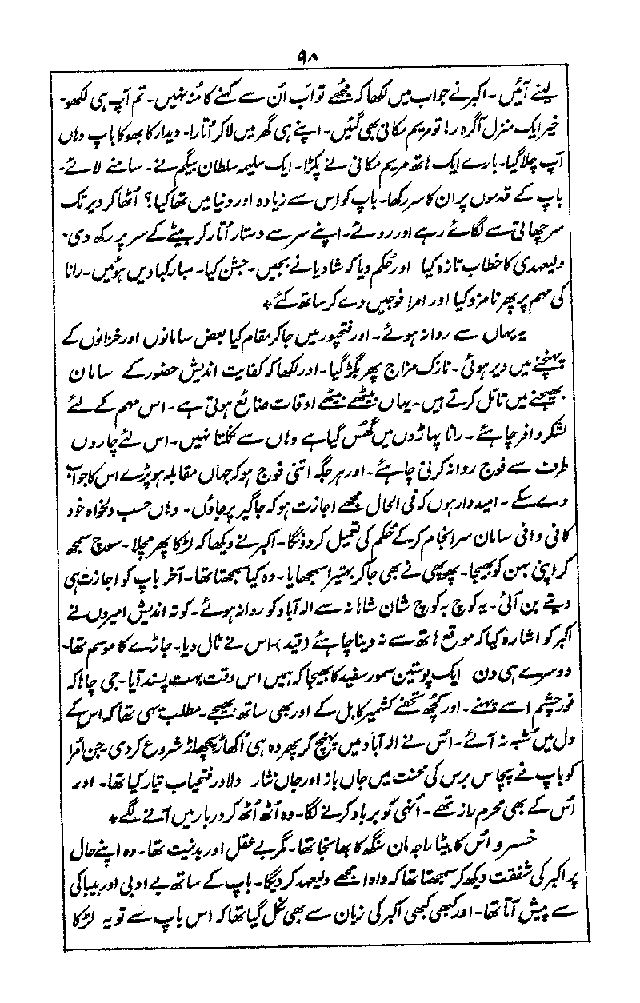 ۹۸
لینے آئیں۔ اکبر نے جواب میں لکھا کہ مجھے تو اب اُن سے کہنے کا مُنہ نہیں۔ تم آپ ہی لکھو۔
خیر ایک منزل آگرہ رہا تو مریم مکانی بھی گئیں۔ اپنے ہی گھر میں لا کر اُتارا۔ دیدار کا بھوکا باپ وہاں
آپ چلا گیا۔ بارے ایک ہاتھ مریم مکانی نے پکڑا۔ ایک سلیمہ سلطان بیگم نے۔ سامنے لائے۔
باپ کے قدموں پر ان کا سر رکھا۔ باپ کو اس سے زیادہ اور دنیا میں تھا کیا؟ اُٹھا کر دیر تک
سر چھاتی سے لگائے رہے اور روئے۔ اپنے سر سے دستار اُتار کر بیٹے کے سر پر رکھ دی۔
ولیعہدی کا خطاب تازہ کیا اور حکم دیا کہ شادیانے بجیں۔ جشن کیا۔ مبارکبادیں ہوئیں۔ رانا
کی مہم پر پھر نامزد کیا اور امرا فوجیں دے کر ساتھ کئے٭
یہ یہاں سے روانہ ہوئے۔ اور فتحپور میں جا کر مقام کیا بعض سامانوں اور خزانوں کے
پہنچنے میں دیر ہوئی۔ نازک مزاج پھر بگڑ گیا۔ اور لکھا کہ کفایت اندیش حضور کے سامان
بھیجنے میں تامل کرتے ہیں۔ یہاں بیٹھے بیٹھے اوقات ضائع ہوتی ہے۔ اس مہم کے لئے
لشکر وافر چاہئے۔ رانا پہاڑوں میں گھس گیا ہے وہاں سے نکلتا نہیں۔ اس لئے چاروں
طرف سے فوج روانہ کرنی چاہئے۔ اور ہر جگہ اتنی فوج ہو کہ جہاں مقابلہ ہو پڑے اس کا جواب
دے سکے۔ امیدوار ہوں کہ فی الحال مجھے اجازت ہو کہ جاگیر پر جاؤں۔ وہاں حسب دلخواہ خود
کافی وافی سامان سرانجام کر کے حکم کی تعمیل کر دونگا۔ اکبر نے دیکھا کہ لڑکا پھر مچلا۔ سوچ سمجھ
کر اپنی بہن کو بھیجا۔ پھپھی نے بھی جا کر بہتیرا سمجھایا۔ وہ کیا سمجھتا تھا۔ آخر باپ کو اجازت ہی
دیتے بن آئی۔ یہ کوچ بہ کوچ شان شاہانہ سے الہ آباد کو روانہ ہوئے۔ کوتہ اندیش امیروں نے
اکبر کو اشارہ کیا کہ موقع ہاتھ سے نہ دینا چاہئے (قید) اس نے ٹال دیا۔ جاڑے کا موسم تھا۔
دوسرے ہی دن ایک پوستین سمور سفید کا بھیجا کہ ہمیں اس وقت بہت پسند آیا۔ جی چاہا کہ
نور چشم اسے پہنے۔ اور کچھ تحفے کشمیر کابل کے اور بھی ساتھ بھیجے۔ مطلب یہی تھا کہ اس کے
دل میں شبہ نہ آئے۔ اس نے الہ آباد میں پہنچ کر پھر وہ ہی اُکھاڑ پچھاڑ شروع کر دی۔ جن امرا
کو باپ نے پچاس برس کی محنت میں جاں باز اور جاں نثار دلاور فتحیاب تیار کیا تھا۔ اور
اُس کے بھی محرم راز تھے۔ اُنہی کو برباد کرنے لگا۔ وہ اُٹھ اُٹھ کر دربار میں آنے لگے٭
خسرو اُس کا بیٹا راجہ مان سنگھ کا بھانجا تھا۔ مگر بے عقل اور بدنیت تھا۔ وہ اپنے حال
پر اکبر کی شفقت دیکھ کر سمجھتا تھا کہ دادا مجھے ولیعہد کر دیگا۔ باپ کے ساتھ بے ادبی اور بیباکی
سے پیش آتا تھا۔ اور کبھی کبھی اکبر کی زبان سے بھی نکل گیا تھا کہ اس باپ سے تو یہ لڑکا